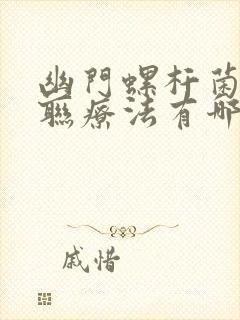 幽門螺杆菌
聯療法有哪
戚惜